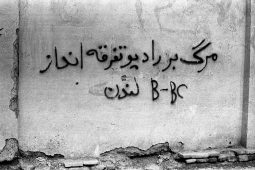 مرگ بر رادیو تفرقه انداز
لندن B-BC